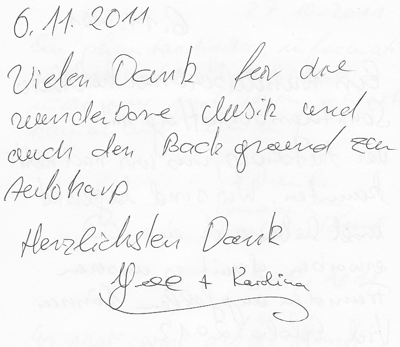 6.11.2011
Vielen Dank für die
wunderbare Musik und
auch den Background zur
Autoharp
Herzlichsten Dank
+ Karolina